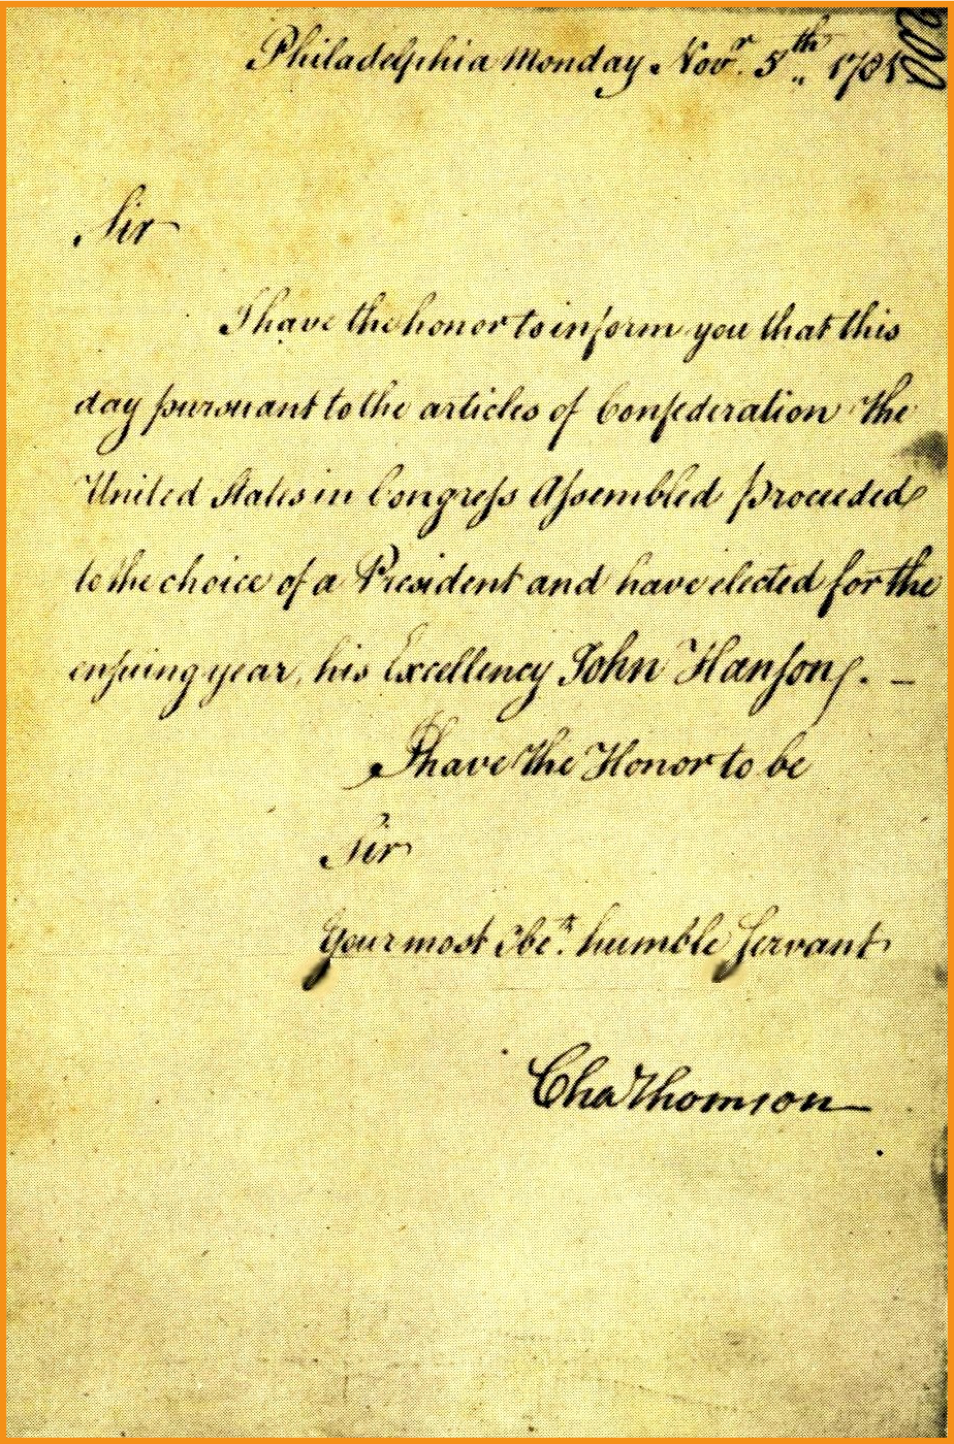 Philadelphia Monday Novr. 5th 1781
Sir
I have the honor to inform you that this
day pursuant to the articles of Confederation the
United States in Congress Assembled proceeded
to the choice of a President and have elected for the
ensuing year, his Excellency John Hanson. —
I have the Honor to be
Sir
Your most Obet. humble Servant
Cha Thomson